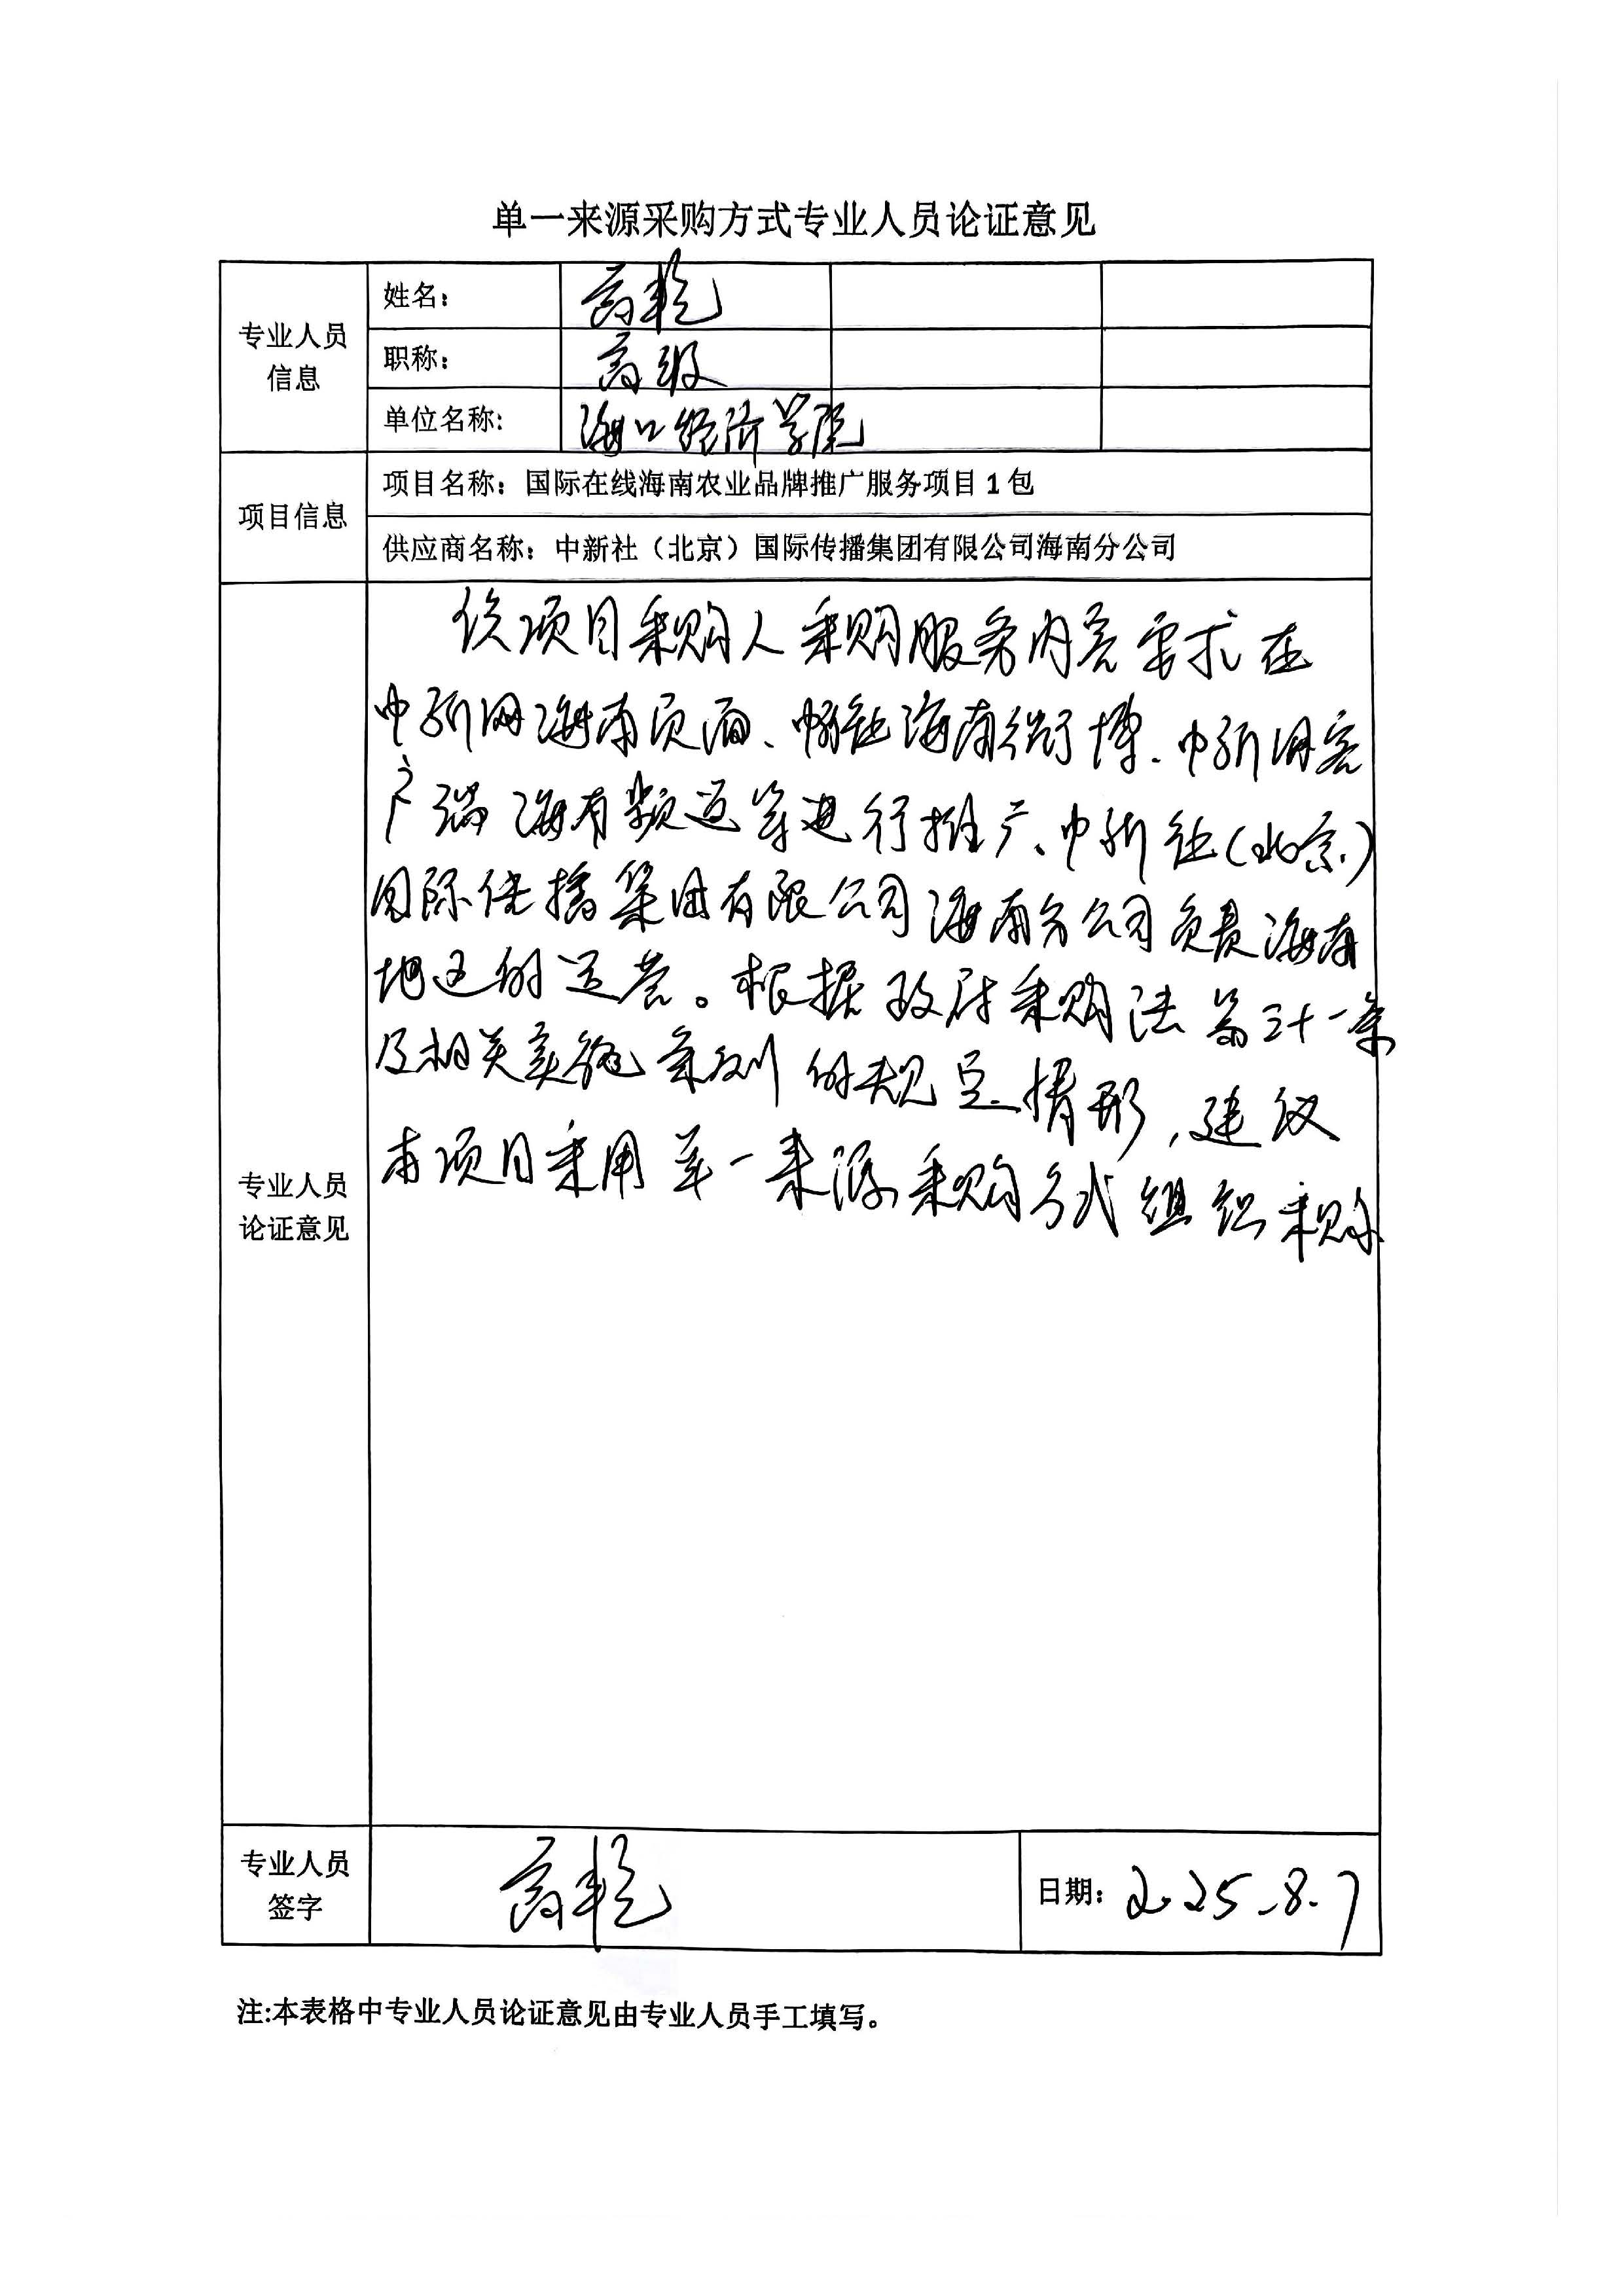 单一来源采购方式专业人员论证意见
专业人员
信息
姓名：
职称： 高级
单位名称： 海口经济学院
项目信息
项目名称：国际在线海南农业品牌推广服务项目1包
供应商名称：中新社（北京）国际传播集团有限公司海南分公司
专业人员
论证意见
该项目采购人采购服务内容要求在
中新网海南页面、中新社海南微博、中新网客
户端海南频道等进行推广、中新社(北京)
国际传播集团有限公司海南分公司负责海南
地区的运营。根据政府采购法第三十一条
及相关实施条例的规定情形,建议
本项目采用单一来源采购方式组织采购
专业人员
签字
日期： 2025.8.7
注:本表格中专业人员论证意见由专业人员手工填写。